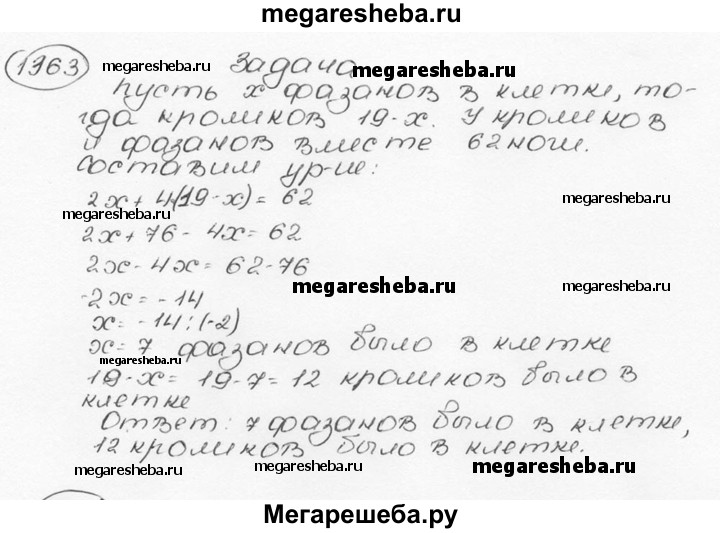 megaresheba.ru
1363 megaresheba.ru Задача megaresheba.ru
Пусть x фазанов в клетке, то-
гда кроликов 19-x. У кроликов
и фазанов вместе 62 ноги.
Составим ур-ие:
2x + 4(19-x) = 62 megaresheba.ru
megaresheba.ru
2x + 76 - 4x = 62
2x - 4x = 62-76
megaresheba.ru
-2x = -14
x = -14:(-2)
x = 7 фазанов было в клетке
megaresheba.ru
19-x = 19-7 = 12 кроликов было в
клетке
Ответ: 7 фазанов было в клетке,
12 кроликов было в клетке.
megaresheba.ru megaresheba.ru megaresheba.ru
Мегарешеба.ру